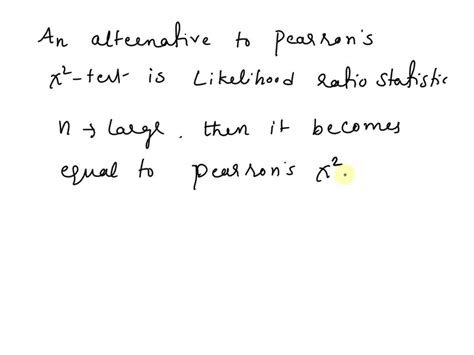 An alternative to Pearson's
x²-test is Likelihood ratio statistic
n → large, then it becomes
equal to pearson's x²